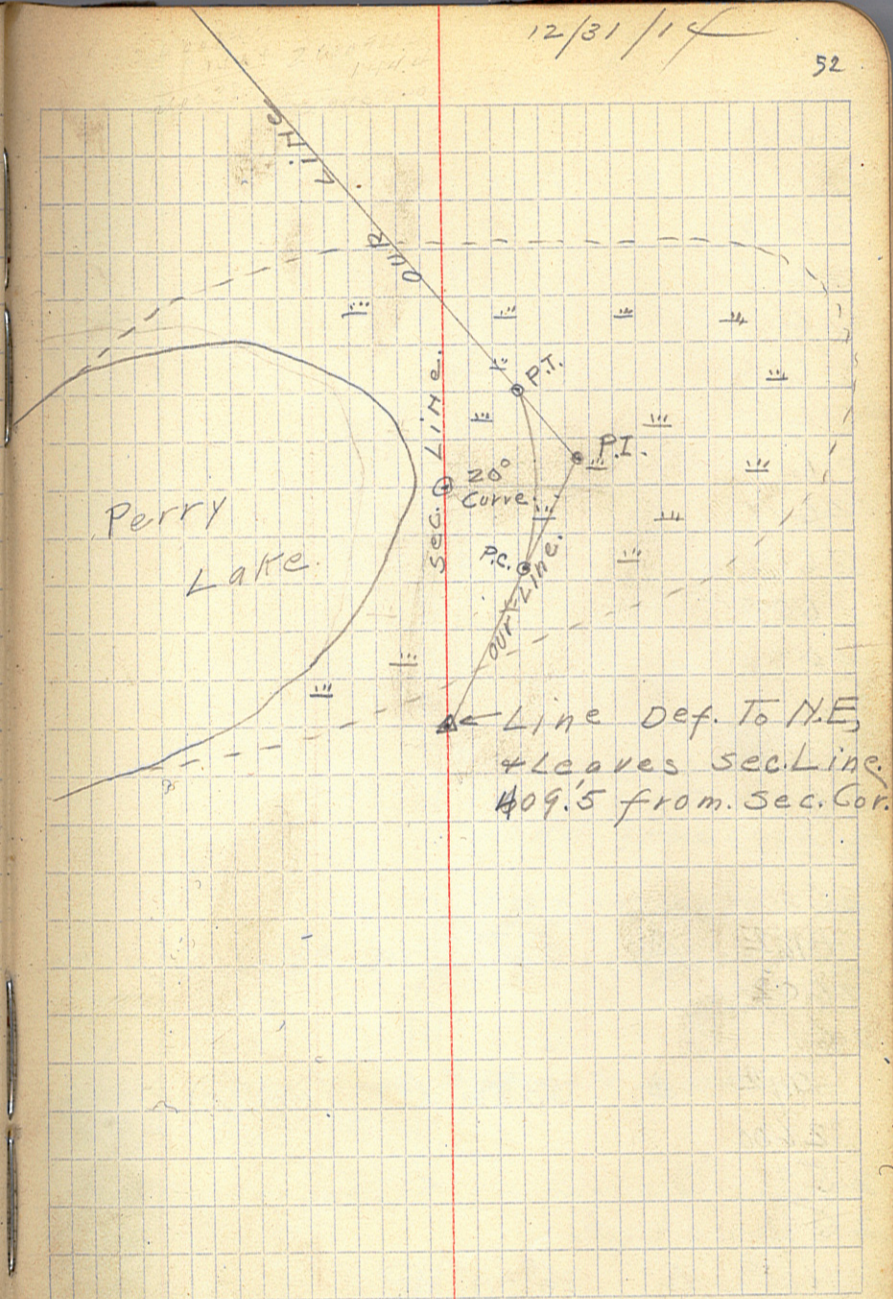 12/31/14
52
OUR LINE
P.T.
P.I.
Sec. LINE.
20°
Curve.
P.C.
Our Line.
Perry
Lake.
Line Def. To N.E,
+ Leaves Sec. Line.
409.'5 from. Sec. Cor.